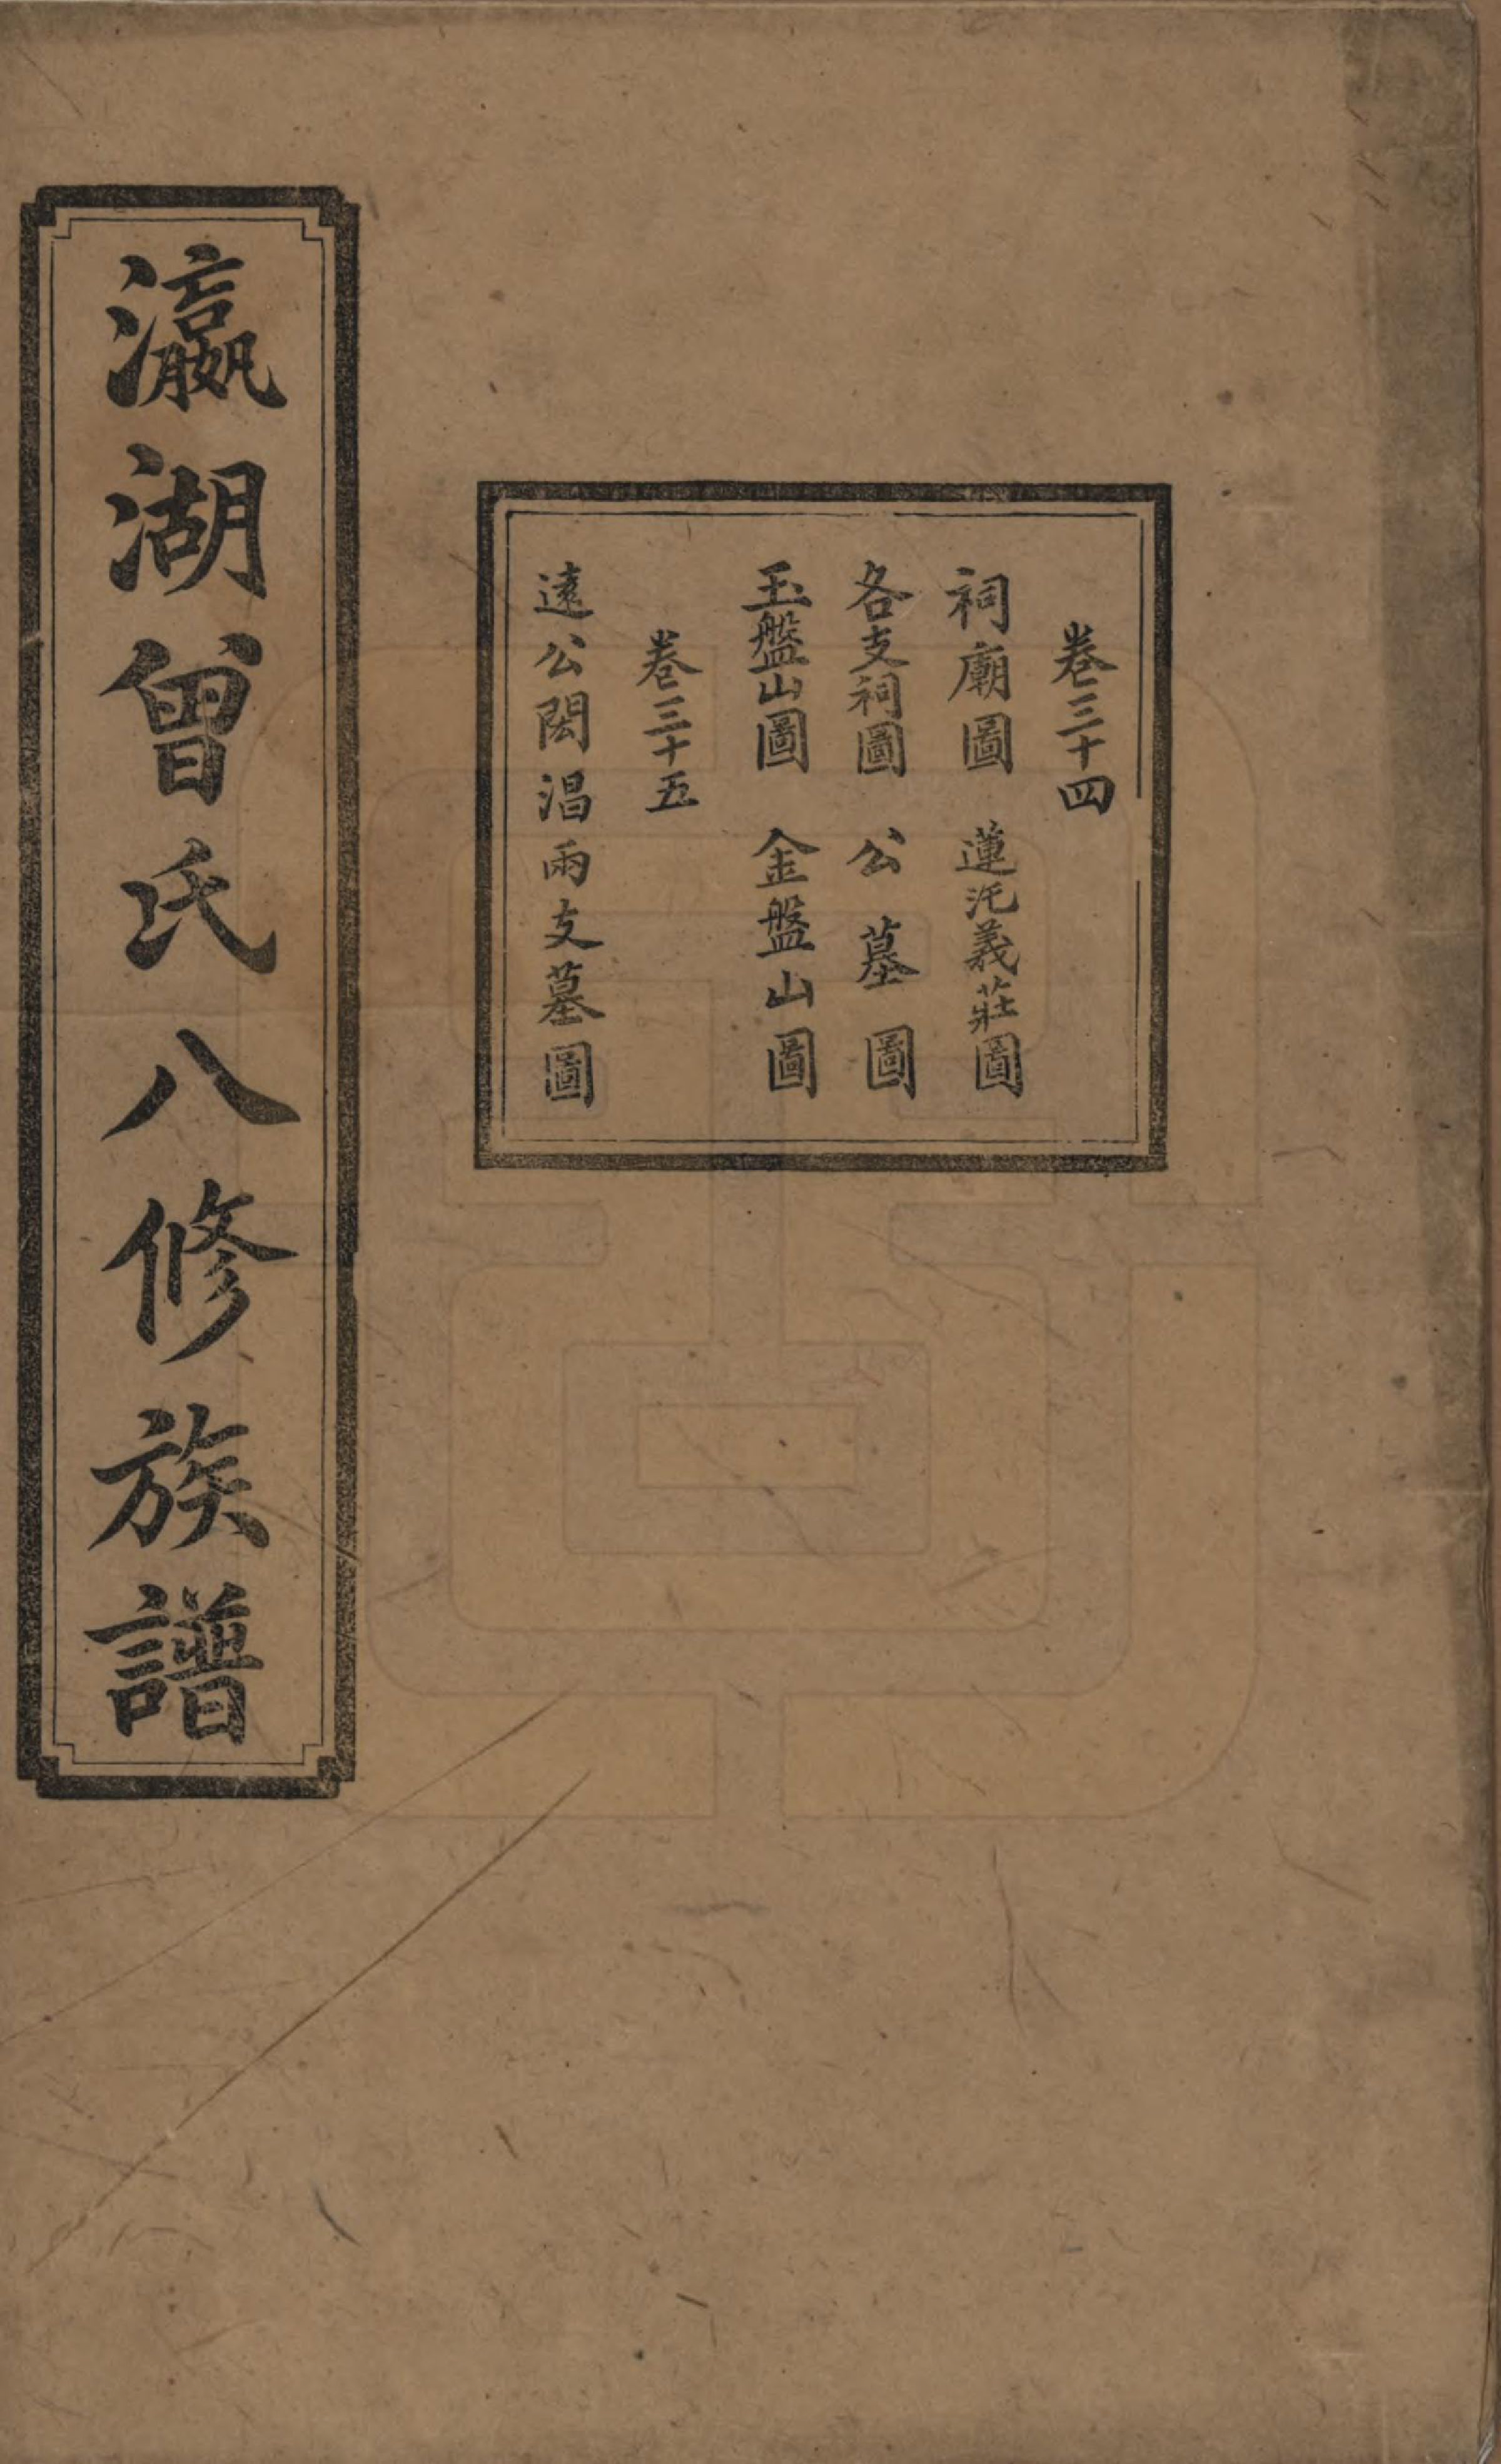 卷三十四
祠廟圖 蓮沱義莊圖
各支祠圖 公墓圖
玉盤山圖 金盤山圖
卷三十五
遠公閎淐兩支墓圖
瀛湖曾氏八修族譜